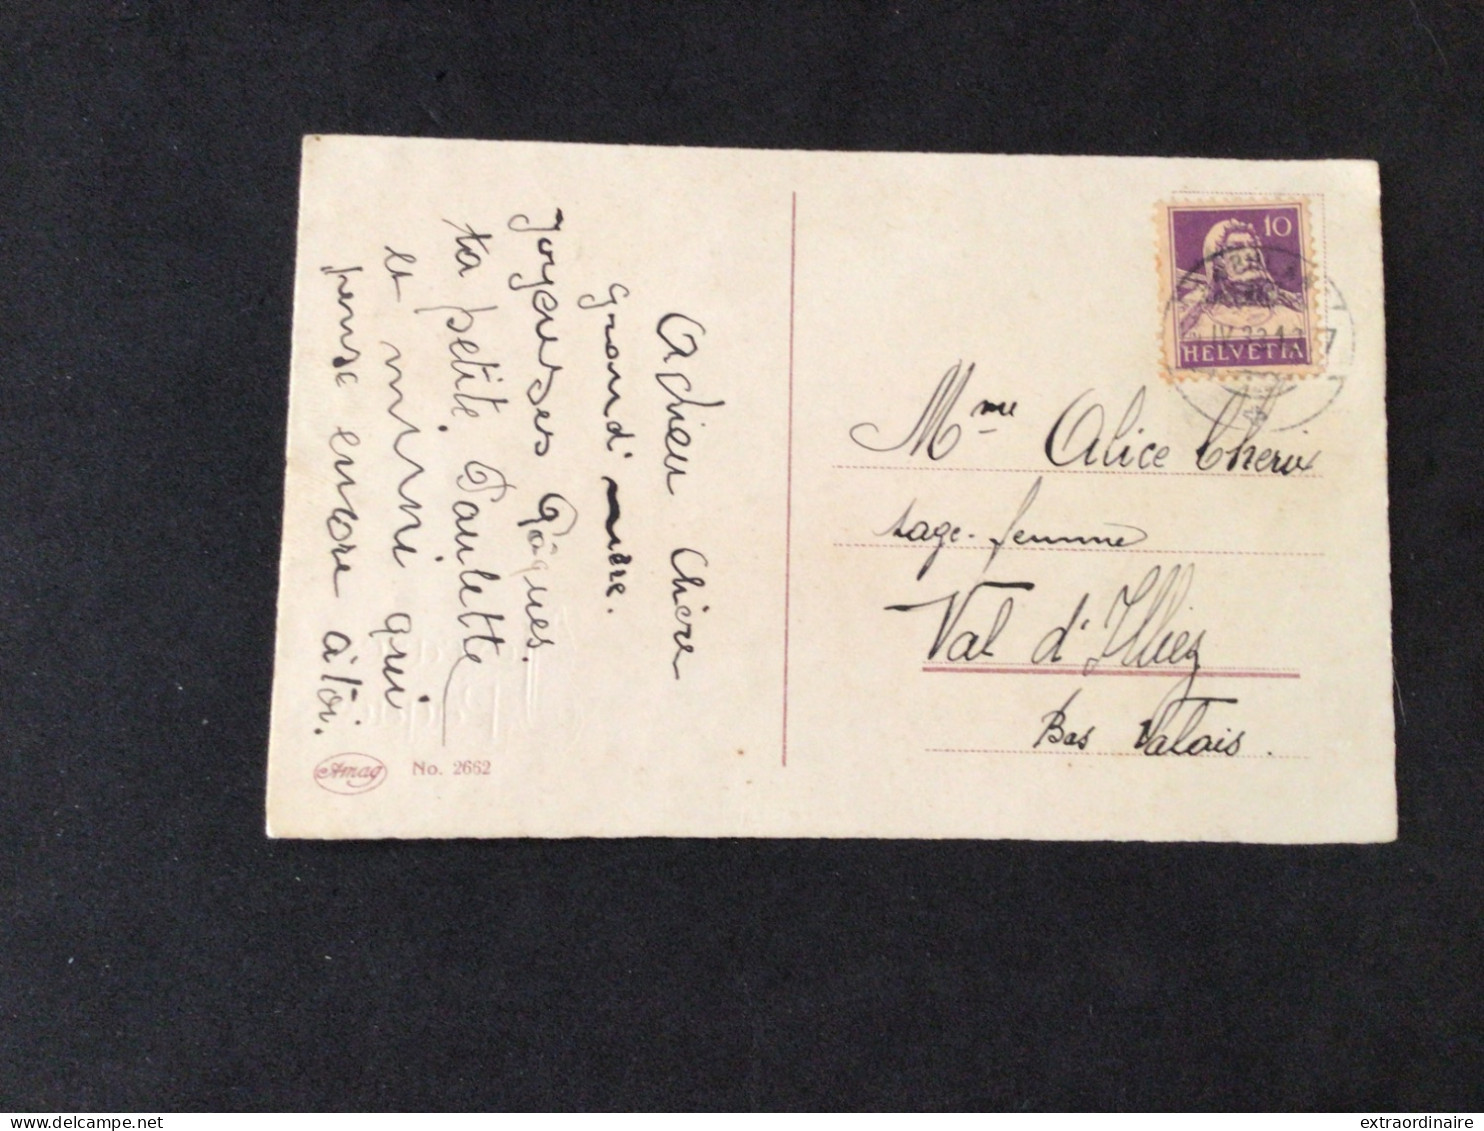 Adieu Chère
Grand' mère.
Joyeuses Pâques.
ta petite Paulette
et mimi qui
pense encore à toi.
Amag No. 2662
10
HELVETIA
IV.32
7
Mme Alice Cherix
sage-femme
Val d'Illiez
Bas Valais.
extraordinaire